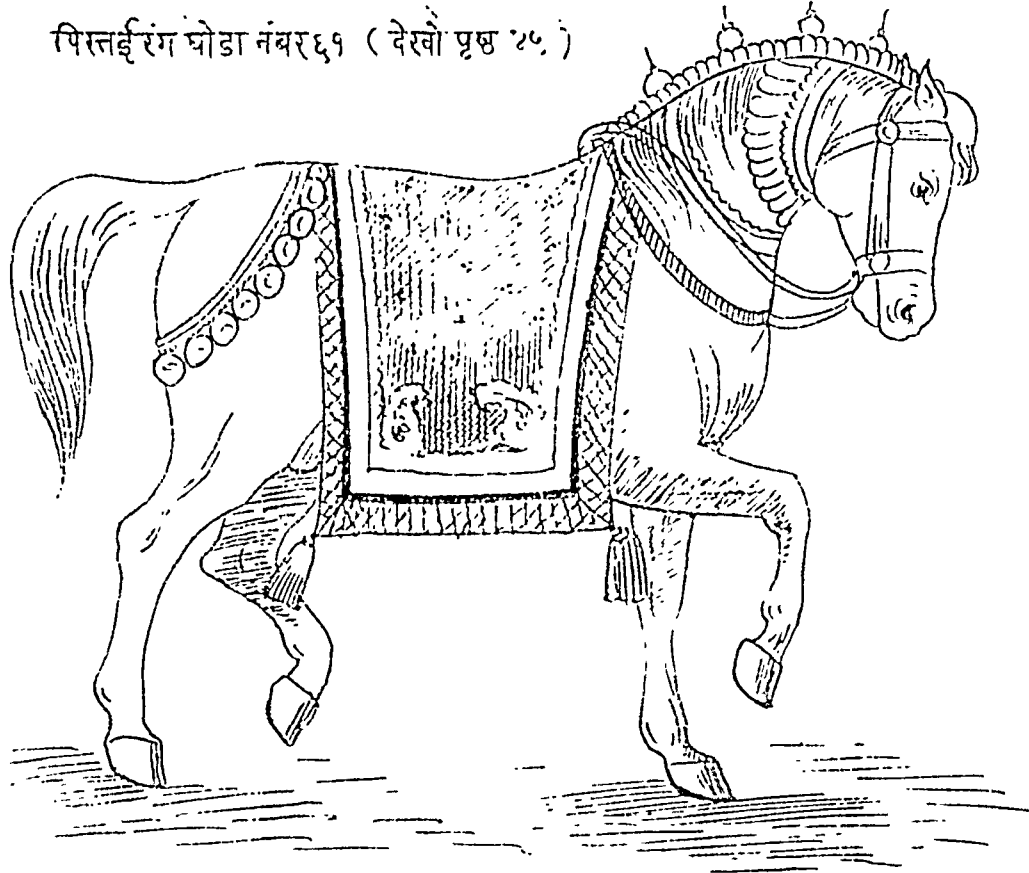 पिस्तईरंग घोडा नंबर६१ ( देखो पृष्ठ ४५ )